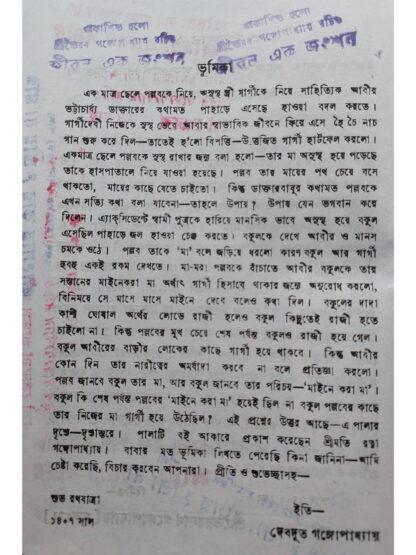 প্রকাশিত হলো
শ্রীভৈরব গঙ্গোপাধ্যায় রচিত
জীবন এক জংশন
প্রকাশিত হলো
শ্রীভৈরব গঙ্গোপাধ্যায় রচিত
জীবন এক জংশন
ভূমিকা
এক মাত্র ছেলে পল্লবকে নিয়ে, অসুস্থ স্ত্রী গার্গীকে নিয়ে সাহিত্যিক আবীর
ভট্টাচার্য্য ডাক্তারের কথামত পাহাড়ে এসেছে হাওয়া বদল করতে।
গার্গীদেবী নিজেকে সুস্থ ভেবে আবার স্বাভাবিক জীবনে ফিরে এসে হৈ চৈ নাচ
গান শুরু করে দিল—তাতেই হ'লো বিপত্তি—উত্তেজিত গার্গী হার্টফেল করলো।
একমাত্র ছেলে পল্লবকে সুস্থ রাখার জন্য বলা হলো—তার মা অসুস্থ হয়ে পড়েছে
তাকে হাসপাতালে নিয়ে যাওয়া হয়েছে। পল্লব তার মায়ের পথ চেয়ে বসে
থাকতো, মায়ের কাছে যেতে চাইতো। কিন্তু ডাক্তারবাবুর কথামত পল্লবকে
এখন সত্যি কথা বলা যাবেনা—তাহলে উপায়? উপায় যেন ভগবান করে
দিলেন। এ্যাক্‌সিডেন্টে স্বামী পুত্রকে হারিয়ে মানসিক ভাবে অসুস্থ হয়ে বকুল
এসেছিল পাহাড়ে জল হাওয়া চেঞ্জ করতে। বকুলকে দেখে আবীর ও মানস
চমকে ওঠে। পল্লব তাকে 'মা' বলে জড়িয়ে ধরলো কারণ বকুল আর গার্গী
হুবহু একই রকম দেখতে। মা-মরা পল্লবকে বাঁচাতে আবীর বকুলকে তার
সন্তানের মাইনেকরা মা অর্থাৎ গার্গী হিসাবে থাকার জন্যে অনুরোধ করলো,
বিনিময়ে সে মাসে মাসে মাইনে দেবে বলেও কথা দিল। বকুলের দাদা
কাশী ঘোষাল অর্থের লোভে রাজী হলেও বকুল কিছুতেই রাজী হতে
চাইলো না। কিন্তু পল্লবের মুখ চেয়ে শেষ পর্যন্ত বকুলও রাজী হয়ে গেল।
বকুল আবীরের বাড়ীর লোকের কাছে গার্গী হয়ে থাকবে। কিন্তু আবীর
কোন দিন তার নারীত্বের অমর্যাদা করবে না বলে প্রতিজ্ঞা করলো।
পল্লব জানবে বকুল তার মা, আর বকুল জানবে তার পরিচয়—'মাইনে করা মা'।
বকুল কি শেষ পর্যন্ত পল্লবের 'মাইনে করা মা' হয়েই ছিল না বকুল পল্লবের কাছে
তার নিজের মা গার্গী হয়ে উঠেছিল? এই প্রশ্নের উত্তর আছে—এ পালার
দৃশ্যে—দৃশ্যান্তরে। পালাটি বই আকারে প্রকাশ করেছেন শ্রীমতি রত্না
গঙ্গোপাধ্যায়। বাবার মত ভূমিকা লিখতে পেরেছি কিনা জানিনা—আমি
চেষ্টা করেছি, বিচার করবেন আপনারা। প্রীতি ও শুভেচ্ছাসহ—
শুভ রথযাত্রা
ইতি—
১৪০৭ সাল
দেবদূত গঙ্গোপাধ্যায়